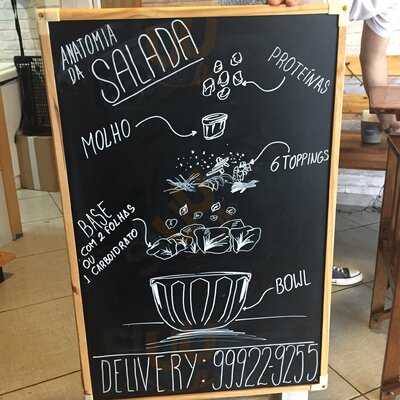 ANATOMIA
DA
SALADA
PROTEÍNAS
MOLHO
6 TOPPINGS
BASE
COM 2 FOLHAS
OU
1 CARBOIDRATO
BOWL
DELIVERY: 99922-9255